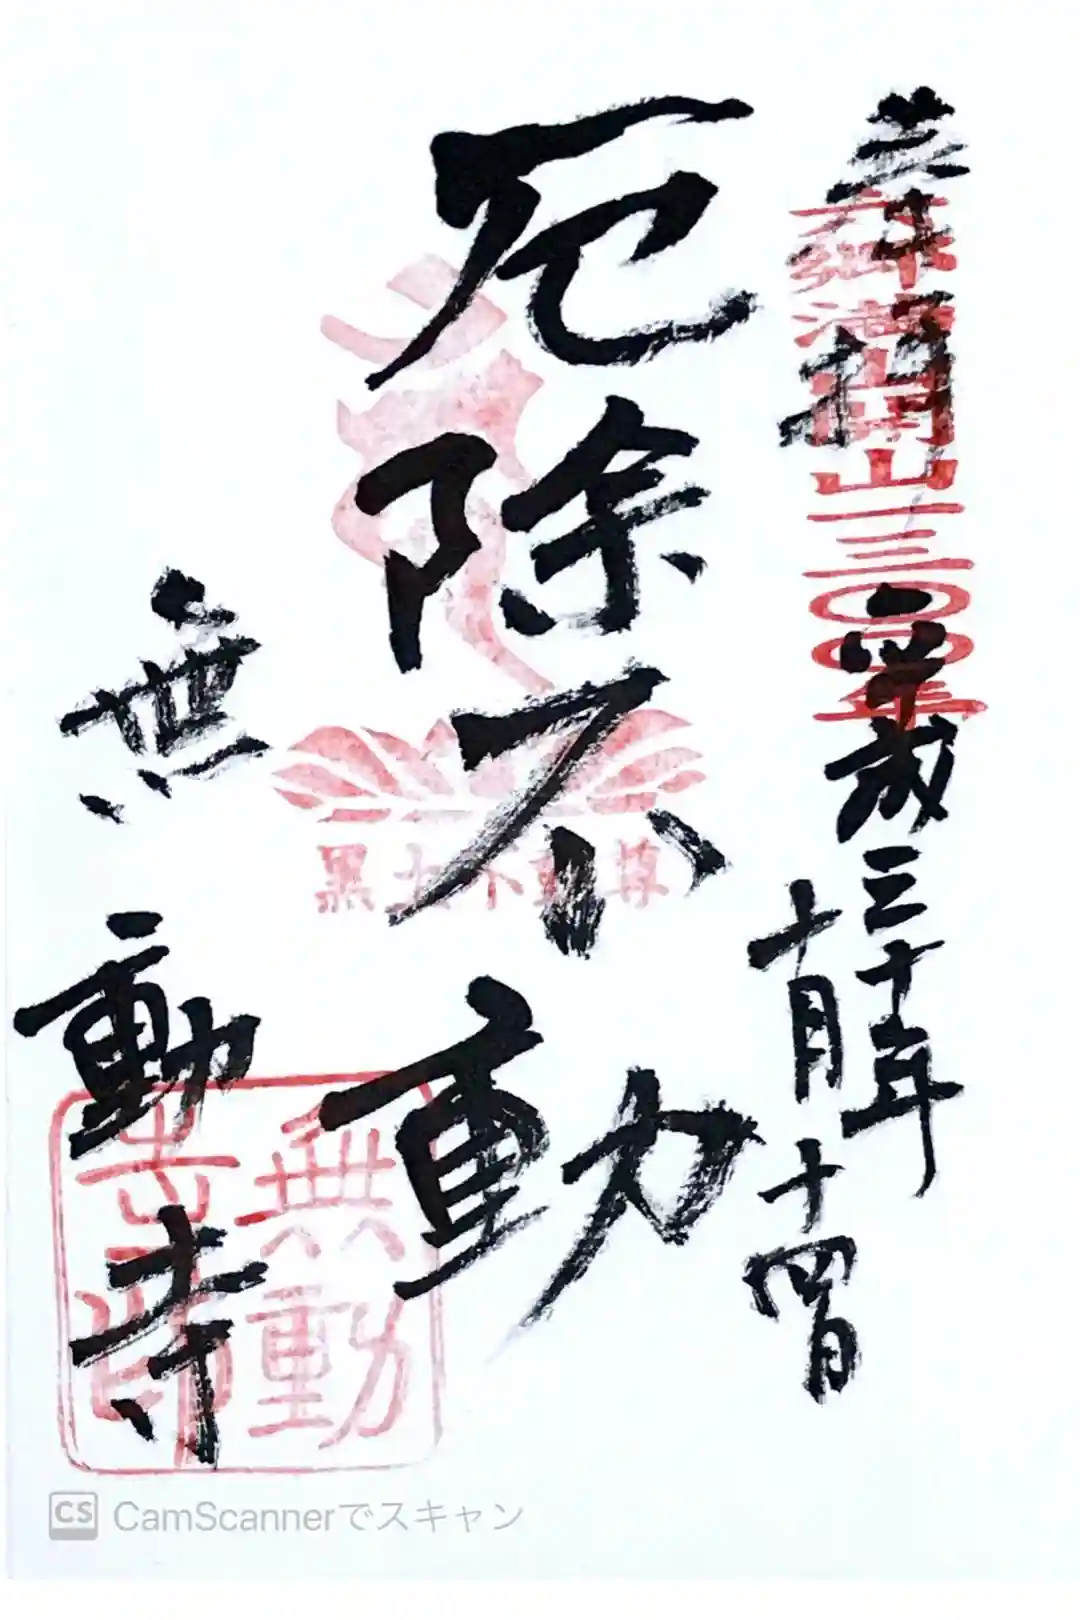 奉拝
平成三十年
十月十四日
開山一三〇〇年
厄除不動
黒土不動尊
無動寺
無動
寺印
CS CamScannerでスキャン